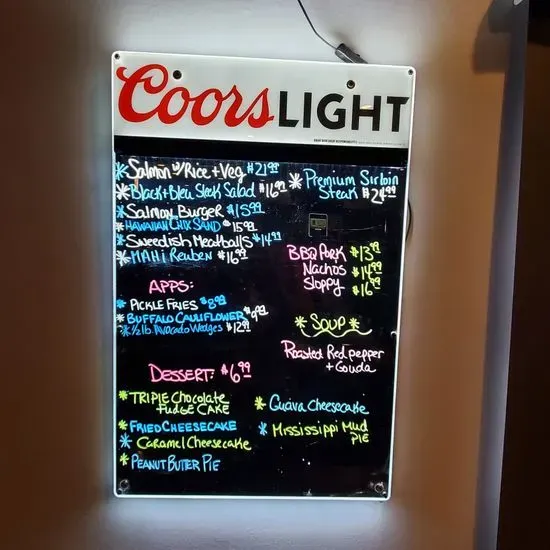 Coors LIGHT
* Salmon w/Rice + Veg $21.99
* Black + Bleu Steak Salad $16.99
* Salmon Burger $15.99
* HAWAIIAN CHIX SAND 15.99
* Swedish Meatballs $14.99
* MAHi Reuben $16.99
* Premium Sirloin
Steak $24.99
BBQ Pork $13.99
Nachos $14.99
Sloppy $16.99
APPS:
* PICKLE FRIES $8.99
* BUFFALO CAULIFLOWER $9.99
* 1/2 lb. Avocado Wedges $12.99
* SOUP *
Roasted Red pepper
+ Gouda
DESSERT: $6.99
* TRIPLE Chocolate
FUDGE CAKE
* FRIED CHEESECAKE
* Caramel Cheesecake
* PEANUT BUTTER PIE
* Guava Cheesecake
* Mississippi Mud
PIE